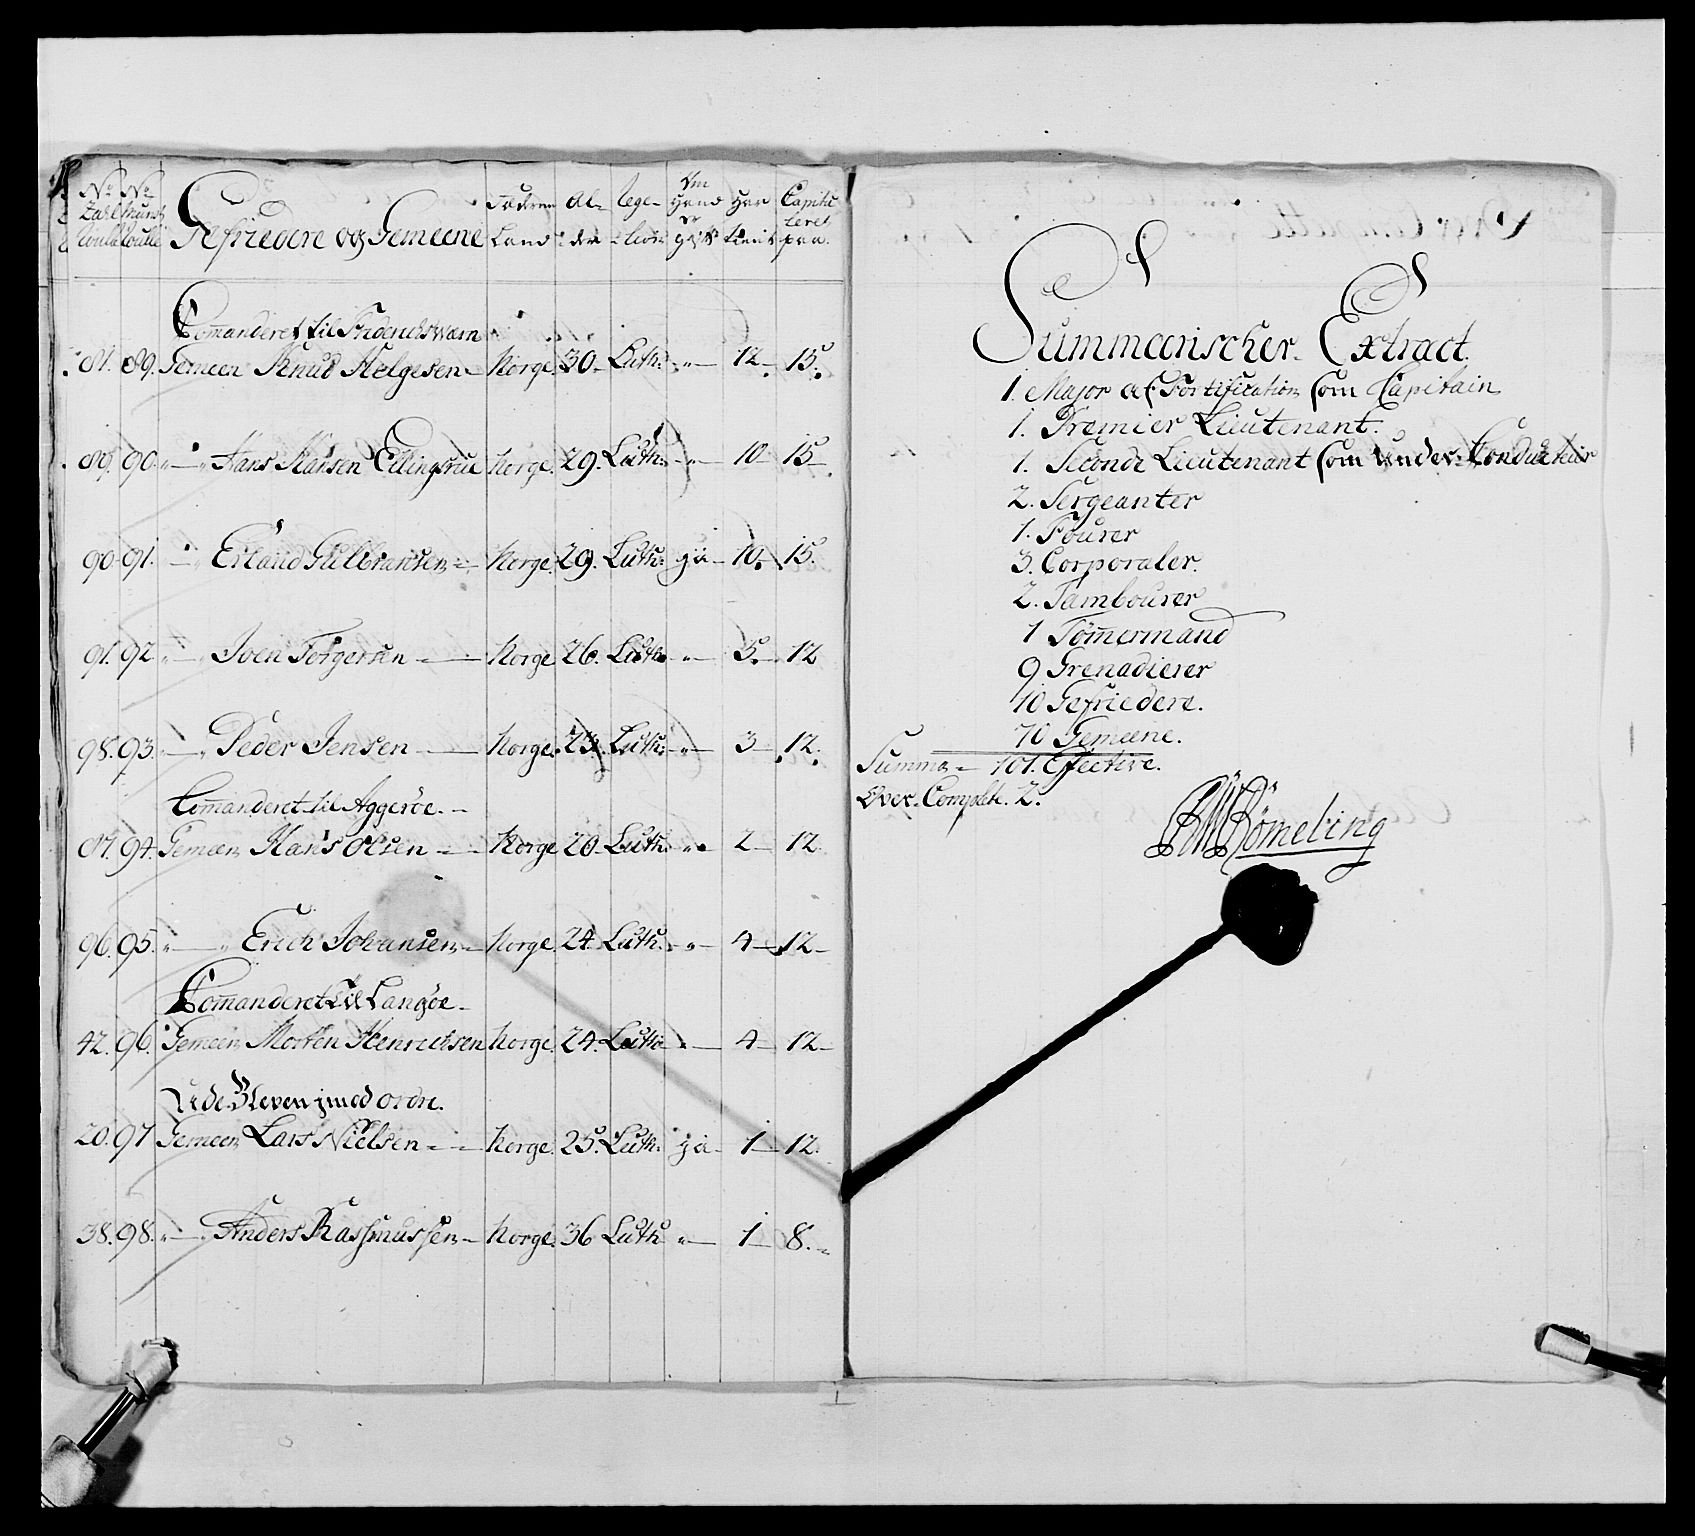 No No Gefriedere og Gemeene Fæderne Al= Relge= Om Har Capitu
Zahl Munst Land der =lion Hand er gift tient leret
Roulle Roulle paa.
Comanderet til Friderichswærn
81. 89. Gemeen Knud Helgesen Norge. 30. Luth: „ 12 15.
89. 90. „ „ Hans Hansen Ellingsrue Norge. 29. Luth: „ 10 15
90. 91. „ Erland Gulbransen Norge. 29. Luth: ja 10. 15.
91. 92 „ „ Joen Torgersen Norge 26. Luth. „ 5. 12
98. 93. „ „ Peder Jensen Norge. 23. Luth: „ 3 12.
Comanderet til Aggerøe.
87. 94. Gemeen Hans Olsen Norge 20 Luth: „ 2 12
96. 95. „ „ Erich Johansen Norge. 24. Luth. „ 4 12
Comanderet til Langøe
42. 96. Gemeen Morten Henrichsen Norge. 24. Luth: „ 4 12
Ude Bleven med ordre.
20. 97 Gemeen Lars Nielsen Norge. 25. Luth. ja 1 12.
38. 98. „ „ Anders Rasmussen Norge. 36 Luth „ 1 8.
Summarischer Extract.
1. Major af Fortification som Capitain
1. Premier Lieutenant.
1. Seconde Lieutenant som Under Conducteur
2. Sergeanter
1. Fourer
3. Corporaler.
2. Tambourer
1 Tømermand
9 Grenadierer
10 Gefriedere.
70 Gemeene.
Summa 101. Effective.
Over Complete. 2.
Rømeling